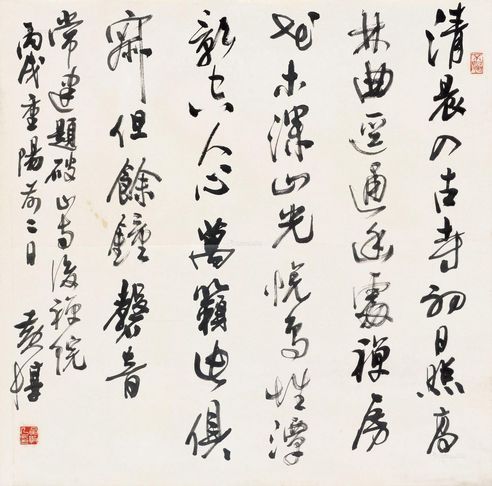 清晨入古寺初日照高
林曲逕通幽處禪房
花木深山光悦鳥性潭
影空人心萬籟此俱
寂但餘鐘磬音
常建題破山寺後禪院
丙戌重陽前二日 黄惇